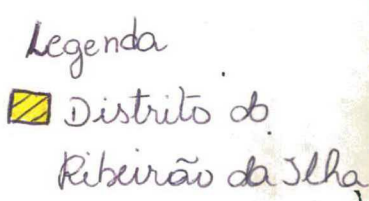 Legenda
Distrito do
Ribeirão da Ilha